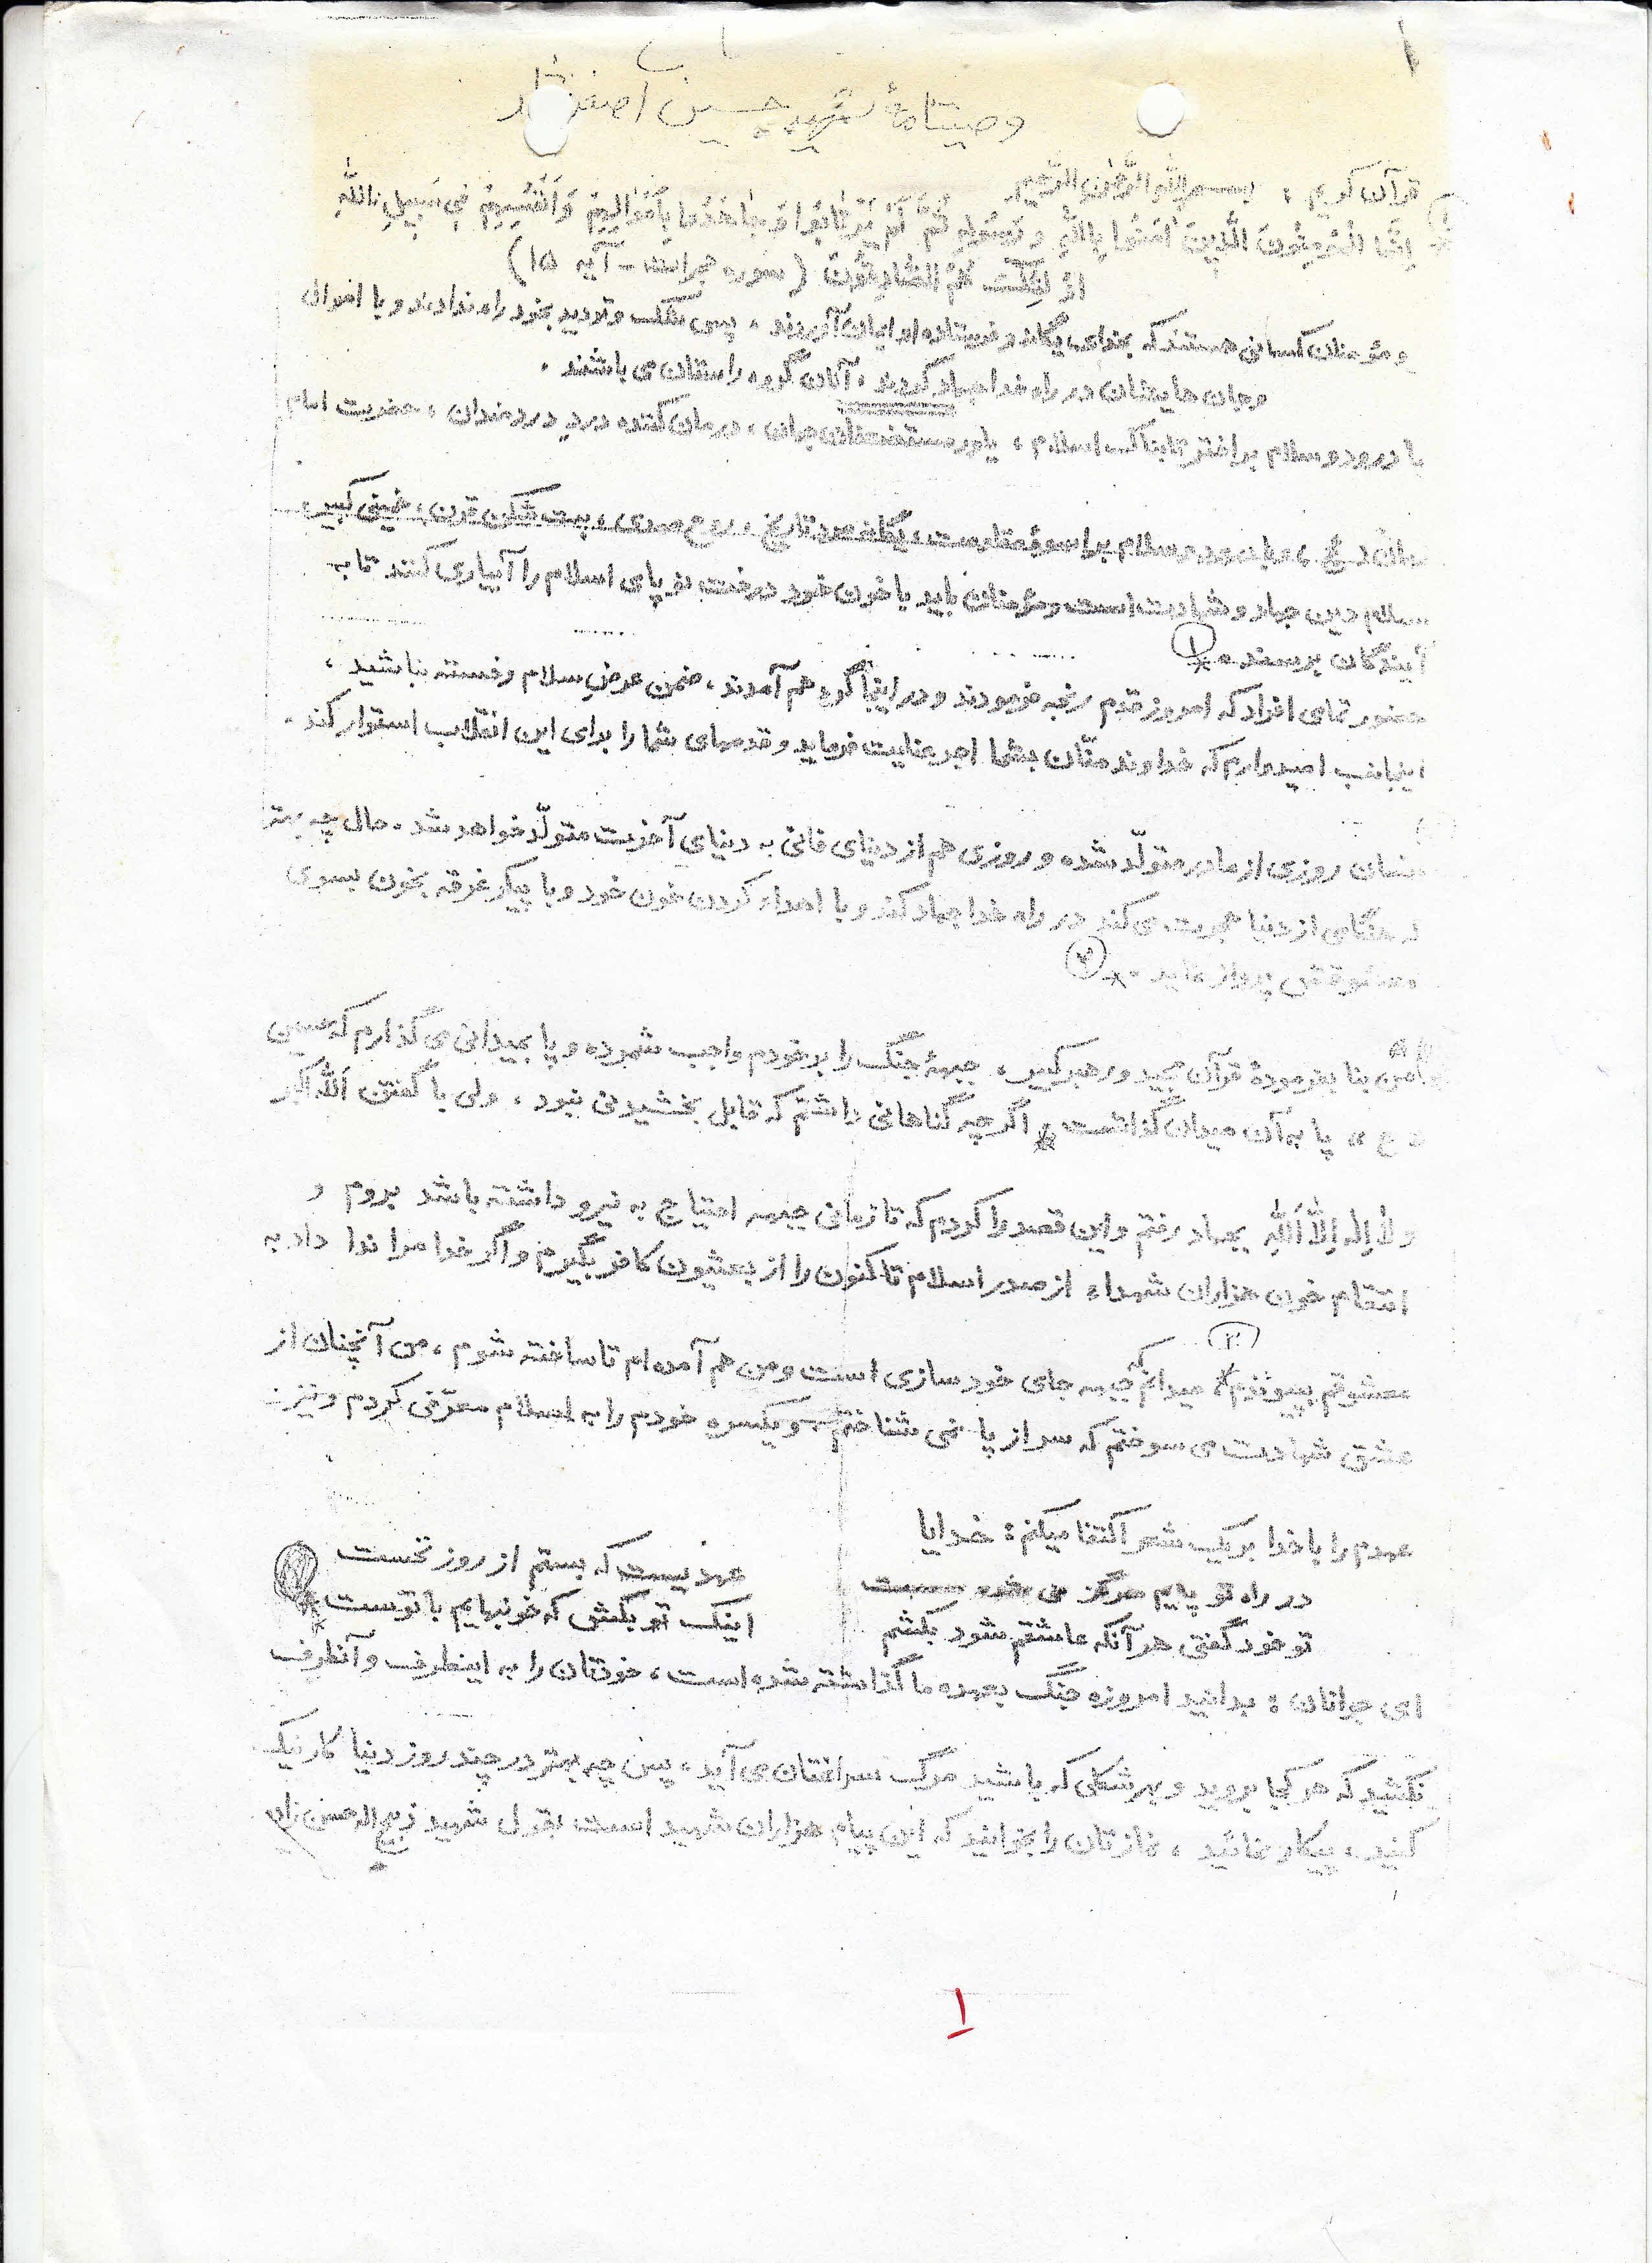 ۱
وصیتنامهٔ شهید حسین
قرآن کریم : بسم الله الرَّحمٰن الرَّحیم
اِنَّمَا المُؤمِنُونَ الَّذِینَ اٰمَنُوا بِاللهِ وَ رَسُولِهِ ثُمَّ لَمْ یَرْتٰابُوا وَ جٰاهَدُوا بِاَمْوٰالِهِمْ وَ اَنْفُسِهِمْ فِی سَبِیلِ اللهِ
اُولٰئِکَ هُمُ الصّٰادِقُونَ (سوره حجرات - آیه ۱۵)
و مؤمنان کسانی هستند که بخدای یگانه و فرستاده او ایمان آوردند ، پس شک و تردید بخود راه ندادند و با اموال
و جان هایشان در راه خدا جهاد کردند ، آنان گروه راستقان می باشند .
با درود و سلام بر اختر تابناک اسلام ، یاور مستضعفان جهان ، درمان کننده درد دردمندان ، حضرت امام
زمان «عج» ، و با درود و سلام بر اسوهٔ مقاومت ، یگانه مرد تاریخ ، روح خدا ، بت شکن قرن ، خمینی کبیر .
اسلام دین جهاد و شهادت است و مؤمنان باید با خون خود درخت نو پای اسلام را آبیاری کنند تا به
آیندگان برسند . * ۱
حضور تمامی افراد که امروز قدم رنجه فرمودند و در اینجا گرد هم آمدند ، ضمن عرض سلام و خسته نباشید ،
اینجانب امیدوارم که خداوند منّان بشما اجر عنایت فرماید و قدمهای شما را برای این انقلاب استوار کند .
انسان روزی از مادر متولّد شده و روزی هم از دنیای فانی به دنیای آخرت متولّد خواهد شد . حال چه بهتر
که هنگامی از دنیا هجرت می کند در راه خدا جهاد کند و با اهداء کردن خون خود و با پیکر غرقه بخون بسوی
معشوقش پرواز نماید . * ۲
من بنا بفرمودهٔ قرآن مجید و رهبر کبیر ، جبههٔ جنگ را بر خودم واجب شمرده و پا بمیدانی می گذارم که حسین
«ع» پا به آن میدان گذاشت * اگر چه گناهانی داشتم که قابل بخشیدنی نبود ، ولی با گفتن اَللهُ اکبر
و لاٰ اِلٰهَ اِلاَّ اَلله بجهاد رفتم و این قصد را کردم که تا زمانی جبهه احتیاج به نیرو داشته باشد بروم و
انتقام خون هزاران شهداء از صدر اسلام تا کنون را از بعثیون کافر بگیرم و اگر خدا مرا ندا داد به
معشوقم بپیوندم * ۳ میدانم که جبهه جای خود سازی است و من هم آمده ام تا ساخته شوم ، من آنچنان از
عشق شهادت می سوختم که سر از پا نمی شناختم و یکسره خودم را به اسلام معرّفی کردم و نیز
عهدم را با خدا بر یک شعر اکتفا میکنم : خدایا
در راه تو پایم هرگز نمی شود سست عهدیست که بستم از روز نخست
تو خود گفتی هر آنکه عاشقم شود بکشم اینک تو بکش که خونبهایم با توست *
ای جوانان : بدانید امروزه جنگ بعهده ما گذاشته شده است ، خودتان را به اینطرف و آنطرف
نکشید که هر کجا بروید و بهر شکلی که باشید مرگ سراغتان می آید ، پس چه بهتر در چند روز دنیا کار نیک
کنید ، پیکار نمائید ، نمازتان را بخوانید که این پیام هزاران شهید است بقول شهید ذبیح اله
۱